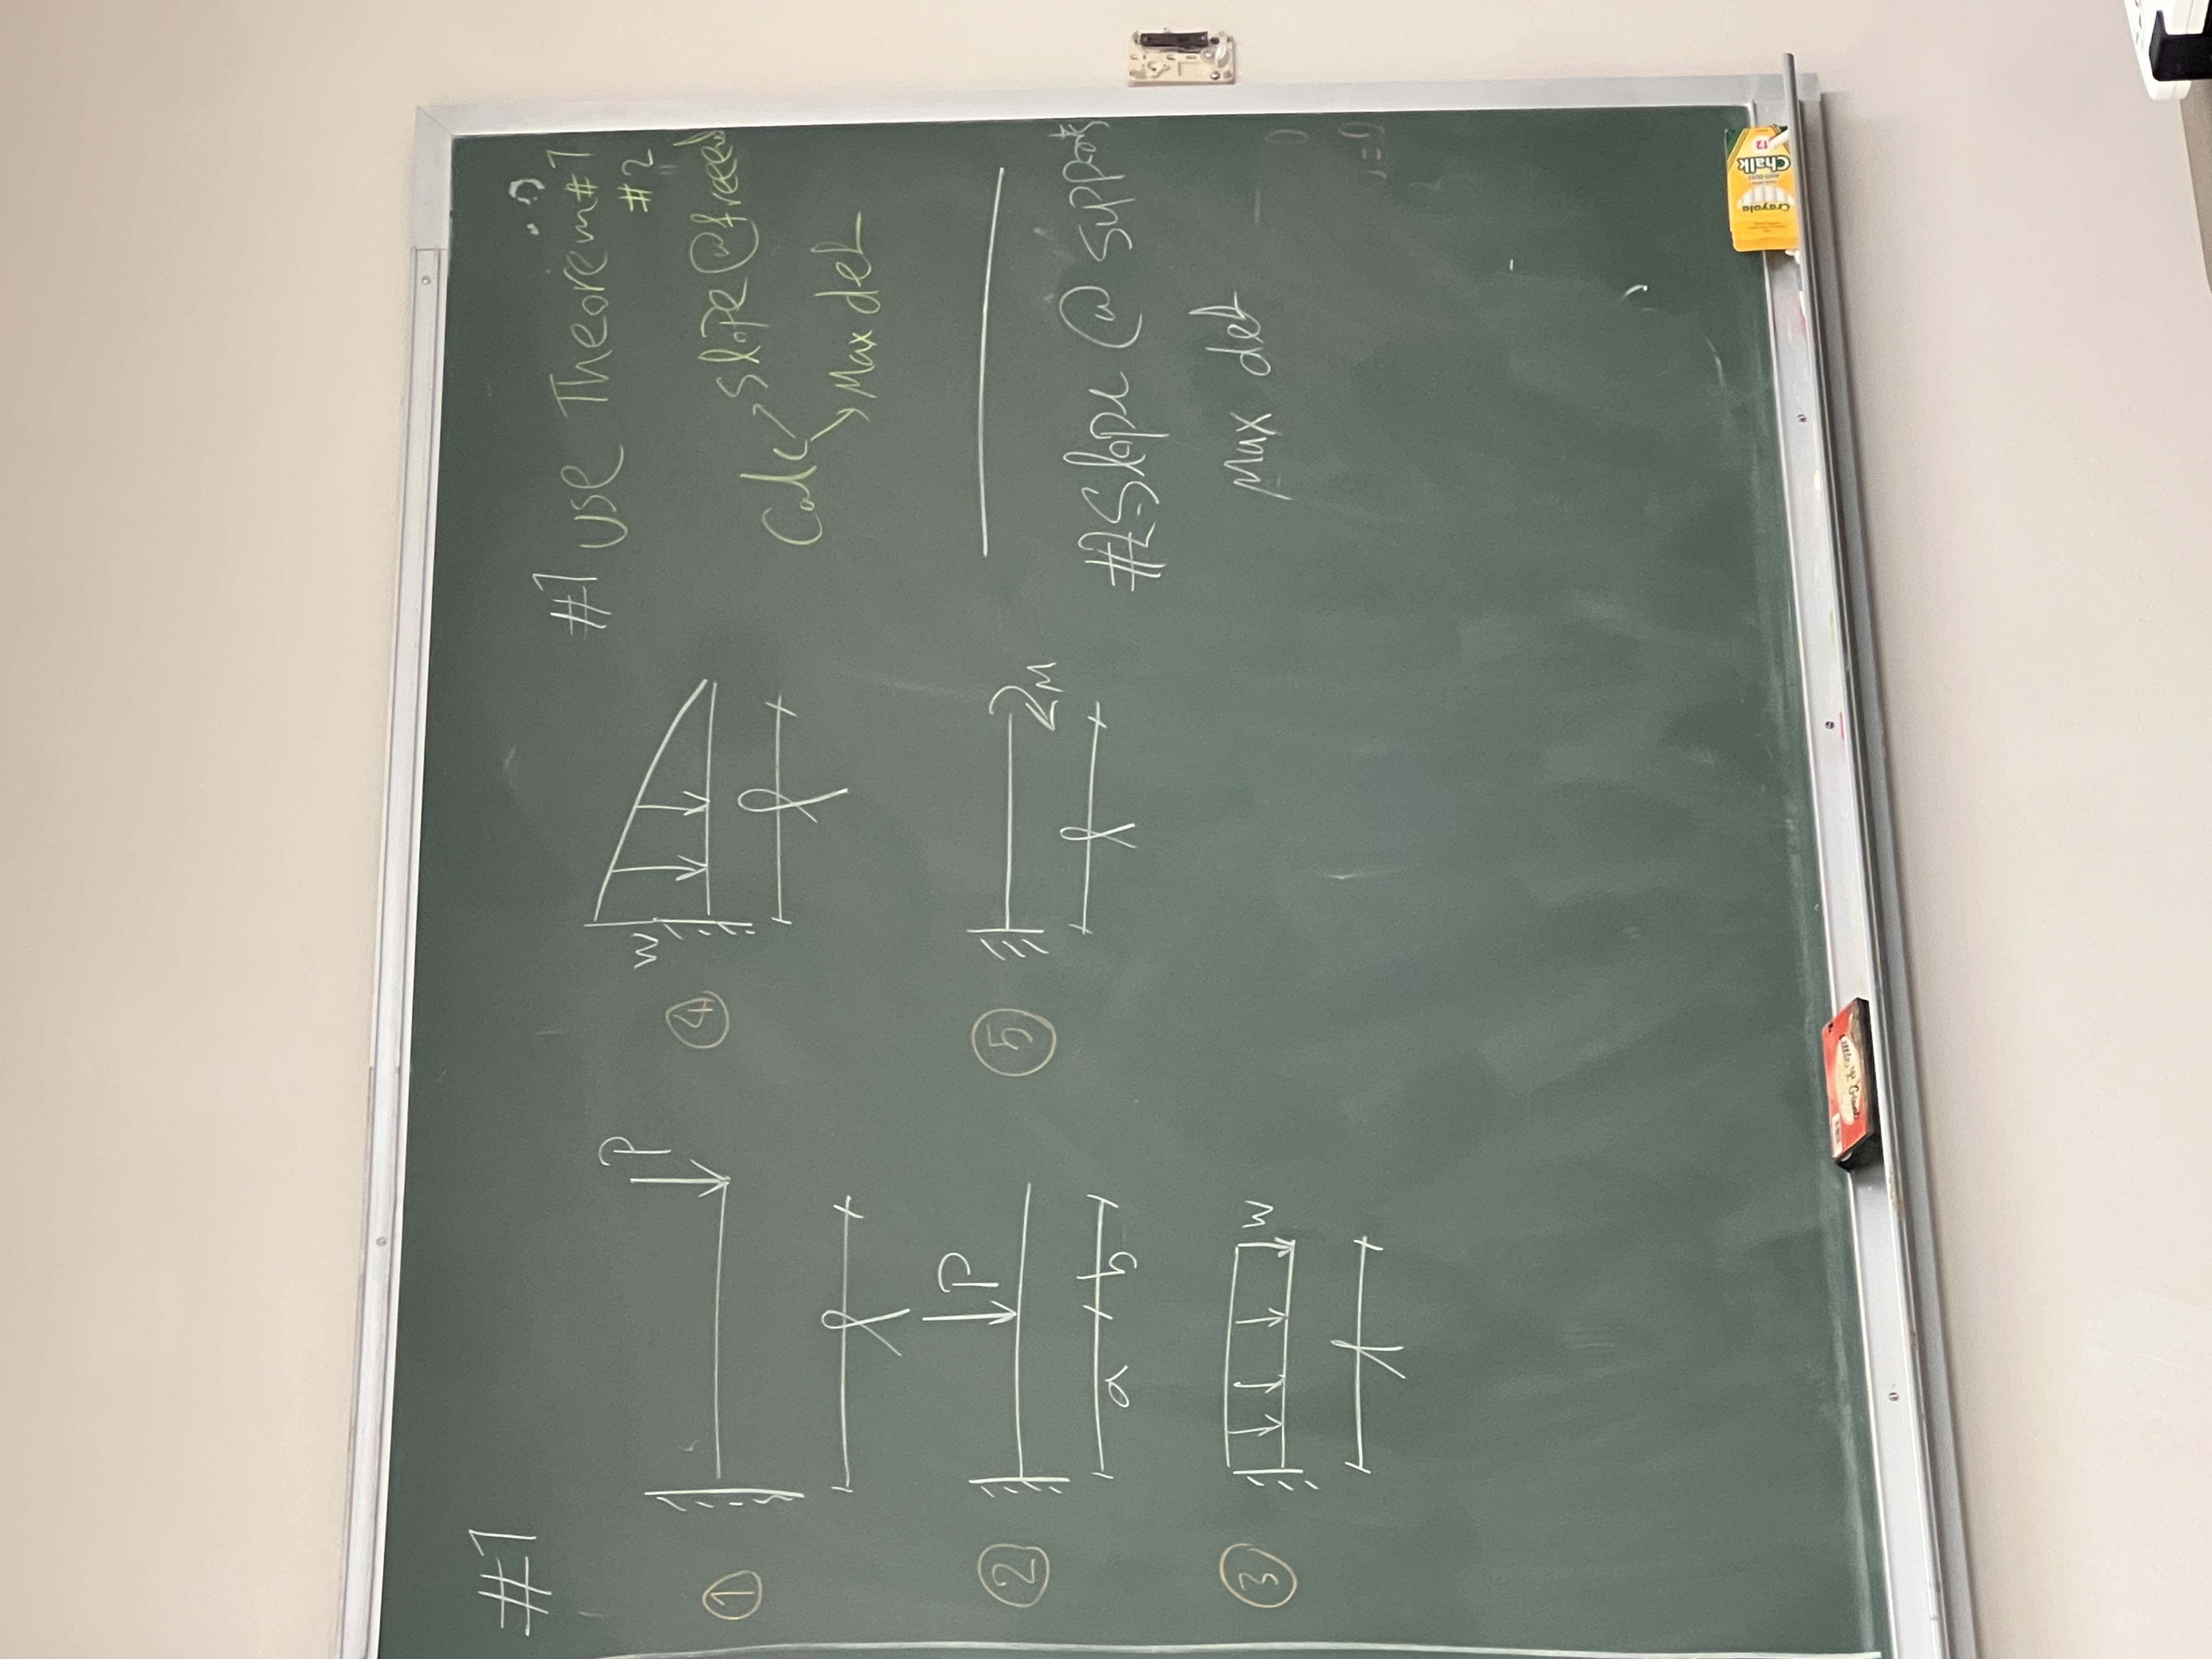 #1
①
P
l
②
P
a
b
③
w
l
④
w
l
⑤
M
l
#1 use Theorem #1
#2
Calc → Slope @ free
→ Max def
#2 Slope @ supports
Max def
Crayola
Chalk
12